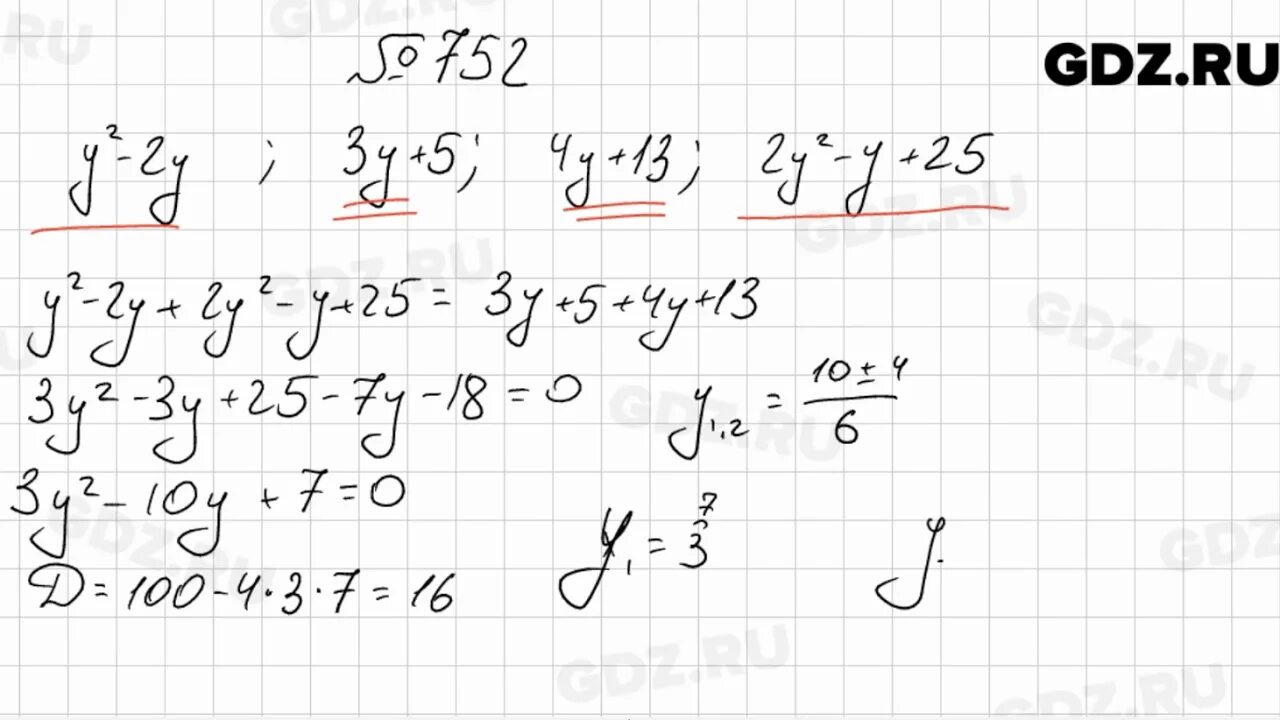 № 752
GDZ.RU
y² - 2y ; 3y + 5; 4y + 13; 2y² - y + 25
y² - 2y + 2y² - y + 25 = 3y + 5 + 4y + 13
3y² - 3y + 25 - 7y - 18 = 0
y₁,₂ = (10 ± 4)/6
3y² - 10y + 7 = 0
y₁ = 7/3
y
D = 100 - 4 · 3 · 7 = 16